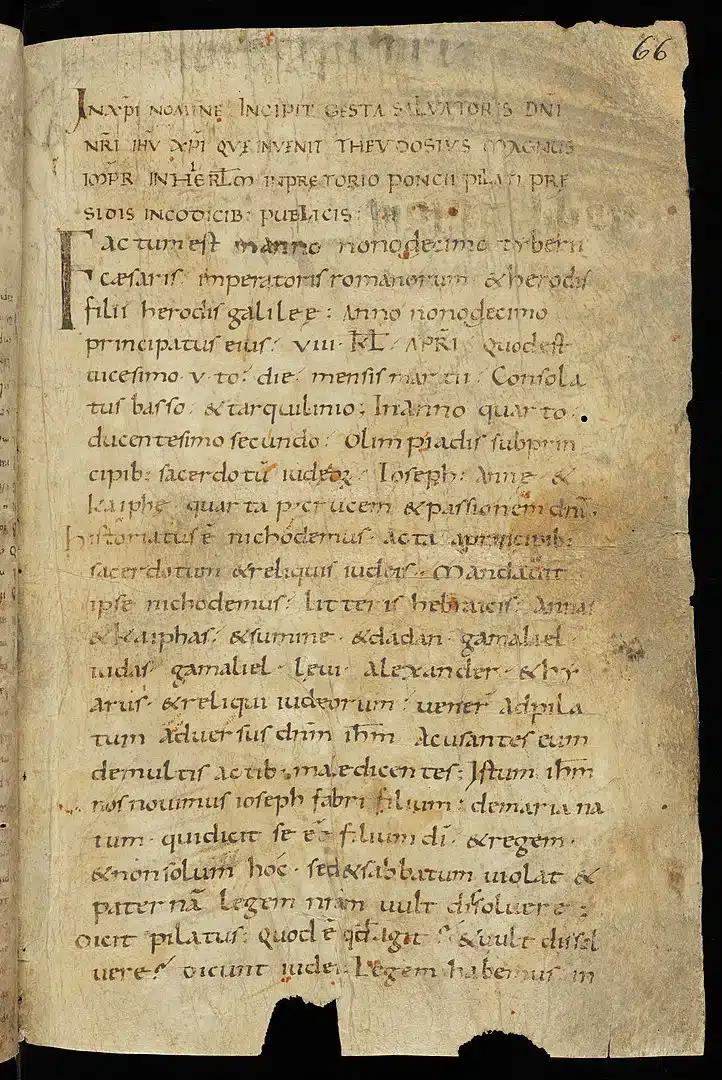 66
IN XPI NOMINE INCIPIT GESTA SALVATORIS DNI
NRI IHU XPI QUE INVENIT THEUDOSIUS MAGNUS
IMPR IN HIERLM IN PRETORIO PONCII PILATI PRE
SIDIS IN CODICIB: PUBLICIS:
Factum est in anno nonodecimo tyberii
cæsaris imperatoris romanorum & herodis
filii herodis galileę: Anno nonodecimo
principatus eius: VIII KL APRI Quod est
uicesimo v to die mensis martii Consola
tus basso & tarquilinio: In anno quarto
ducentesimo secundo: Olimpiadis sub prin
cipib: sacerdotū iudeoꝝ Ioseph: Anne &
kaiphe quarta p crucem & passionem dni
historiatus ē nichodemus acta a principib:
sacerdotum & reliquis iudeis Mandauit
ipse nichodemus: litteris hebraicis: Annas
& kaiphas & summe & dadan gamaliel
iudas gamaliel leui Alexander & hy
arus & reliqui iudeorum: uener ad pila
tum aduersus dnm ihm Acusantes eum
de multis actib: maledicentes: Istum ihm
nos nouimus ioseph fabri filium: de maria na
tum quidicit se eē filium di & regem
& non solum hoc sed & sabbatum uiolat &
paternā legem nram uult dissoluere:
Dicit pilatus: Quod ē qd agit & uult dissol
uere? Dicunt iudei Legem habemus in